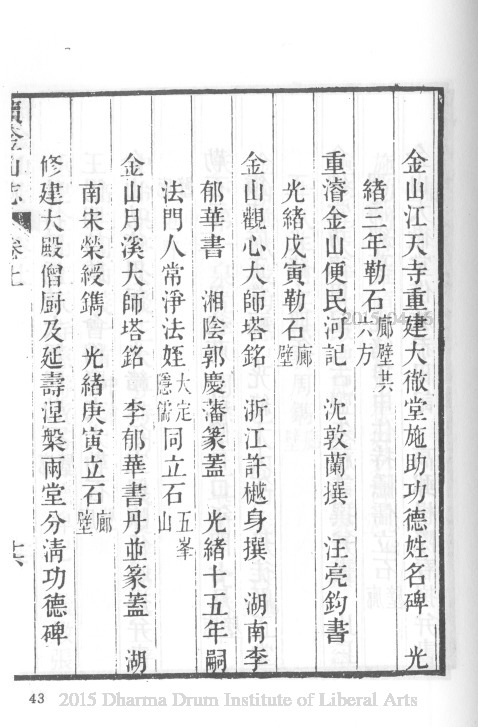 金山江天寺重建大徹堂施助功德姓名碑 光
緒三年勒石廊壁共六方
重濬金山便民河記 沈敦蘭撰 汪亮鈞書
光緒戊寅勒石廊壁
金山觀心大師塔銘 浙江許樾身撰 湖南李
郁華書 湘陰郭慶藩篆蓋 光緒十五年嗣
法門人常淨法姪大定隱儒同立石五峯山
金山月溪大師塔銘 李郁華書丹並篆蓋 湖
南宋榮綬鐫 光緒庚寅立石廊壁
修建大殿僧厨及延壽涅槃兩堂分清功德碑
續金山志 卷上 十六
43
2015 Dharma Drum Institute of Liberal Arts